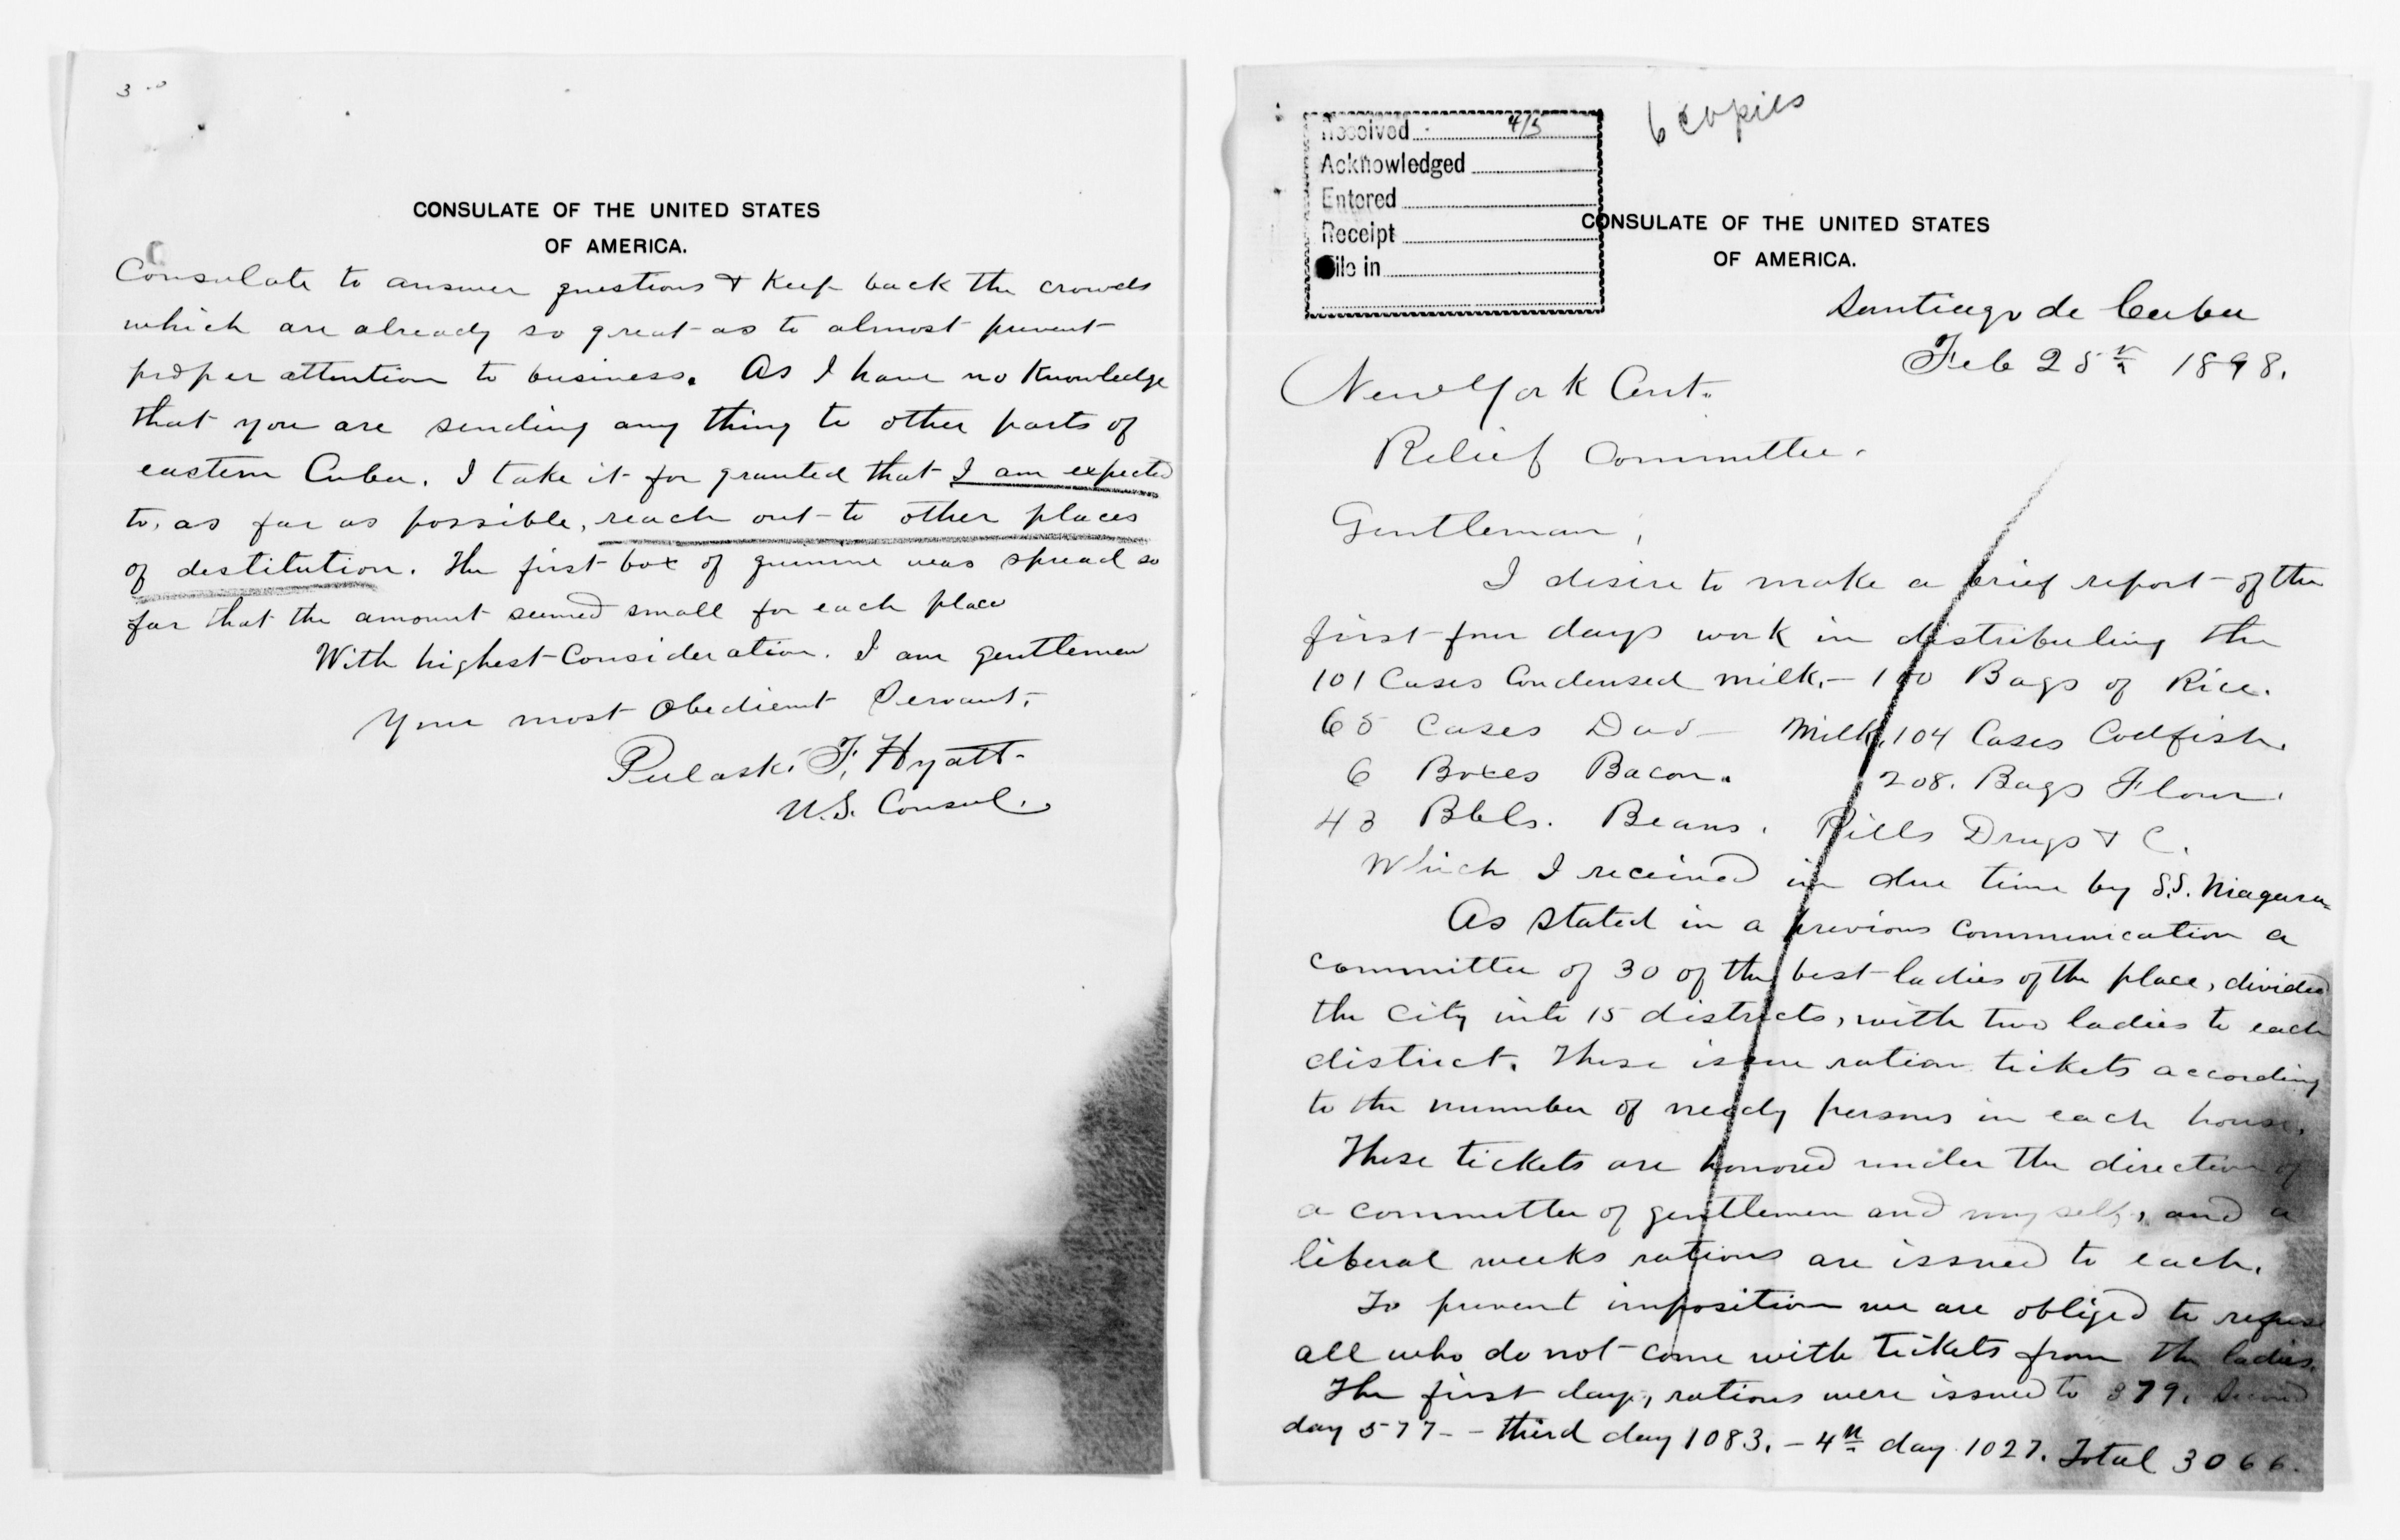 3
CONSULATE OF THE UNITED STATES
OF AMERICA.
Consulate to answer questions & keep back the crowds
which are already so great as to almost prevent
proper attention to business. As I have no knowledge
that you are sending any thing to other parts of
eastern Cuba. I take it for granted that I am expected
to, as far as possible, reach out to other places
of destitution. The first box of quinine was spread so
far that the amount seemed small for each place
With highest Consideration. I am gentlemen
Your most Obedient Servant,
Pulaski F, Hyatt
U.S. Consul.
Received 4/5
Acknowledged
Entered
Receipt
File in
6 copies
CONSULATE OF THE UNITED STATES
OF AMERICA.
Santiago de Cuba
Feb 25th 1898.
New York Cent.
Relief Committee.
Gentleman,
I desire to make a brief report of the
first four days work in distributing the
101 Cases Condensed milk, – 100 Bags of Rice.
65 Cases Milk, 104 Cases Codfish.
6 Boxes Bacon. 208. Bags Flour.
43 Bbls. Beans. Pills Drugs & C.
Which I received in due time by S.S. Niagara
As stated in a previous Communication a
committee of 30 of the best ladies of the place, divided
the City into 15 districts, with two ladies to each
district. These issue ration tickets according
to the number of needy persons in each house.
These tickets are honored under the direction of
a committee of gentlemen and myself, and a
liberal weeks rations are issued to each.
To prevent imposition we are obliged to refuse
all who do not come with tickets from the ladies.
The first day, rations were issued to 379. Second
day 577 – – third day 1083. – 4th day 1027. Total 3066.